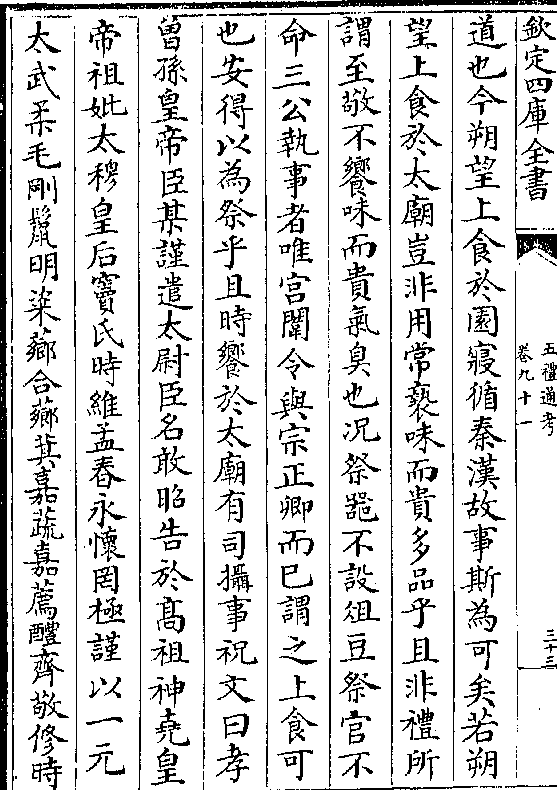 欽定四庫全書
五禮通考
卷九十一
三十三
道也今朔望上食於園寢循秦漢故事斯為可矣若朔
望上食於太廟豈非用常褻味而貴多品乎且非禮所
謂至敬不饗味而貴氣臭也况祭器不設俎豆祭官不
命三公執事者唯宮闈令與宗正卿而已謂之上食可
也安得以為祭乎且時饗於太廟有司攝事祝文曰孝
曾孫皇帝臣某謹遣太尉臣名敢昭告於髙祖神堯皇
帝祖妣太穆皇后竇氏時維孟春永懷罔極謹以一元
大武柔毛剛鬛明粢薌合薌萁嘉蔬嘉薦醴齊敬修時